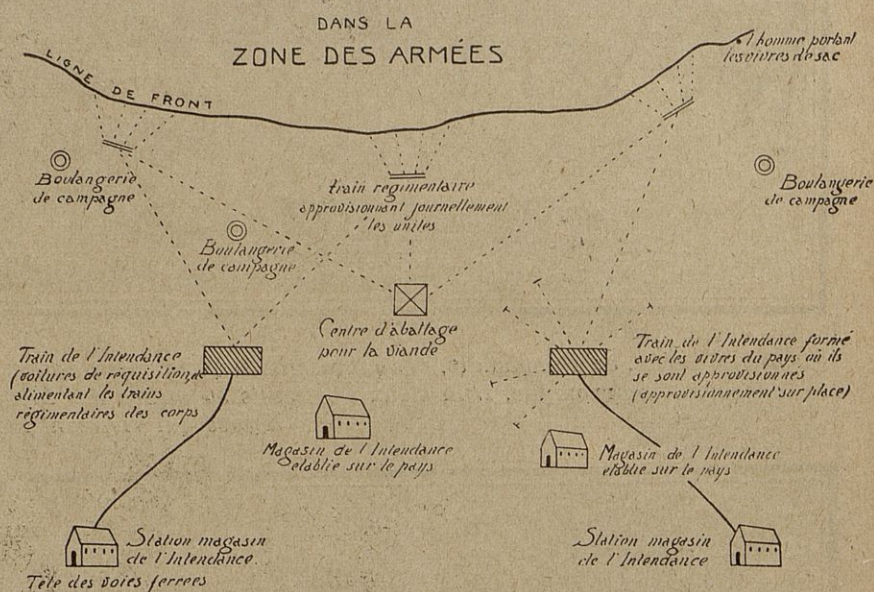 DANS LA
ZONE DES ARMÉES
LIGNE DE FRONT
1 homme portant
les vivres de sac
Boulangerie
de campagne
train régimentaire
approvisionnant journellement
les unités
Boulangerie
de campagne
Boulangerie
de campagne
Centre d'abattage
pour la viande
Train de l'Intendance
(voitures de réquisition,
alimentant les trains
régimentaires des corps
Train de l'Intendance formé
avec les vivres du pays où ils
se sont approvisionnés
(approvisionnement sur place)
Magasin de l'Intendance
etablie sur le pays
Magasin de l'Intendance
etablie sur le pays
Station magasin
de l'Intendance.
Tête des voies ferrées
Station magasin
de l'Intendance